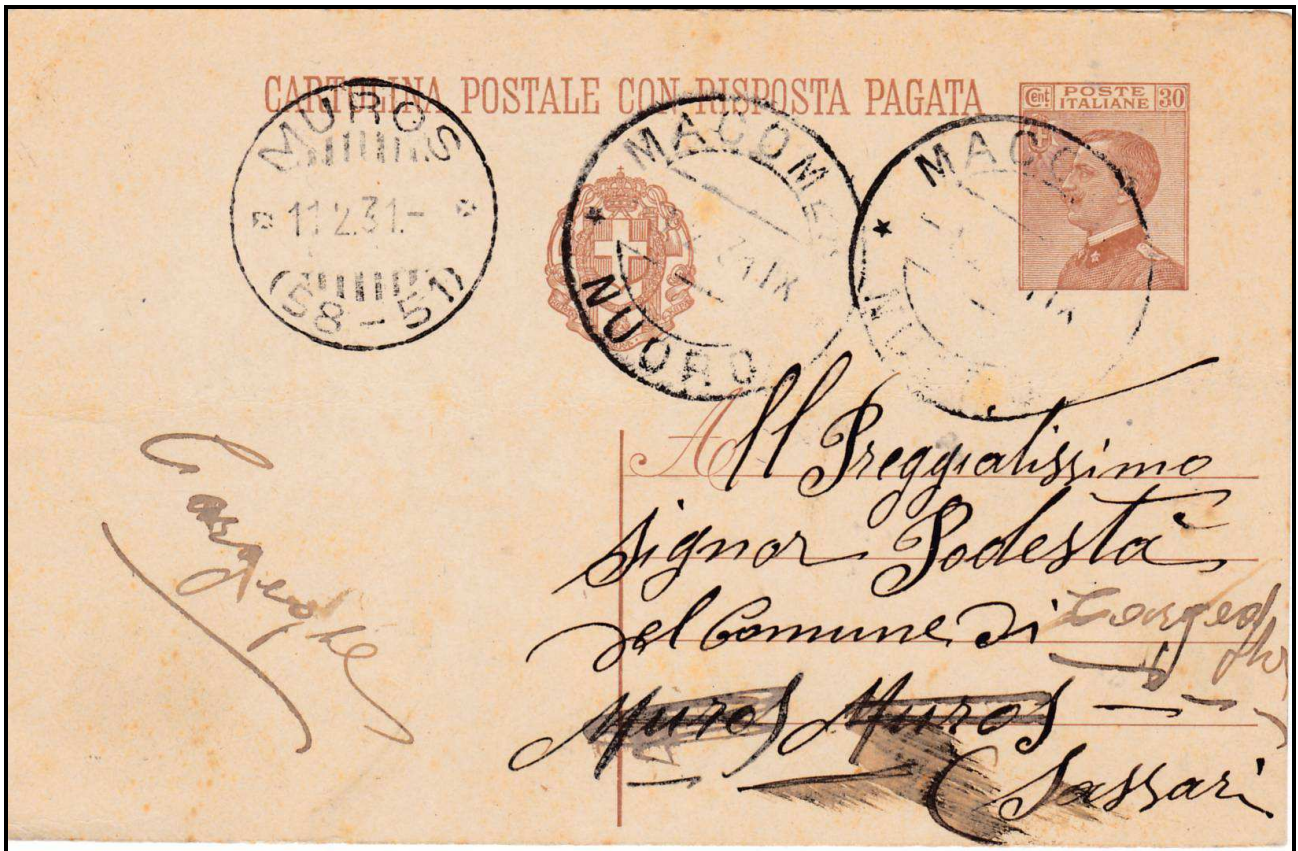 CARTOLINA POSTALE CON RISPOSTA PAGATA
Cent. POSTE ITALIANE 30
MUROS
11.2.31.-
(58-51)
MACOMER
NUORO
MACO
NUORO
All Preggiatissimo
signor Podestà
del Comune di Cargeghe
Muros Muros
(Sassari
Cargeghe